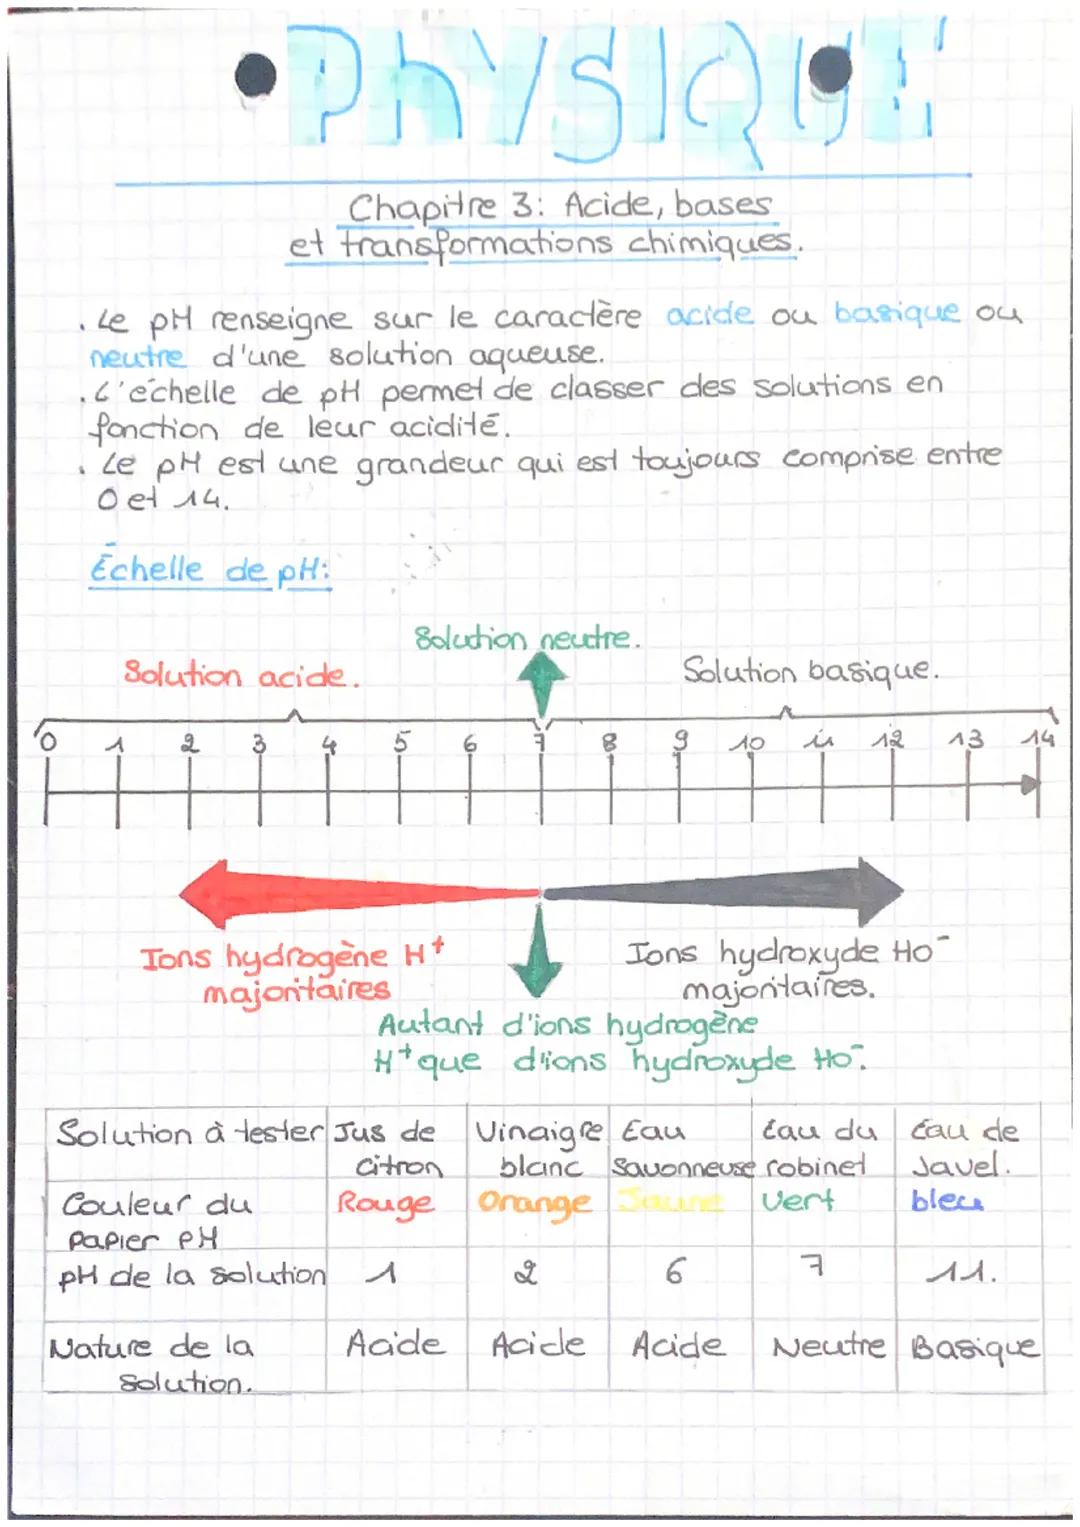 PhYSIQUE
Chapitre 3: Acide, bases
et transformations chimiques.
. Le pH renseigne sur le caractère acide ou basique ou
neutre d'une solution aqueuse.
. L'échelle de pH permet de classer des solutions en
fonction de leur acidité.
. Le pH est une grandeur qui est toujours comprise entre
0 et 14.
Échelle de pH:
Solution neutre.
Solution acide.
Solution basique.
0 1 2 3 4 5 6 7 8 9 10 11 12 13 14
Ions hydrogène H+
majoritaires
Ions hydroxyde HO-
majoritaires.
Autant d'ions hydrogène
H+ que d'ions hydroxyde HO-.
Solution à tester Jus de citron Vinaigre blanc Eau Savonneuse Eau du robinet Eau de Javel.
Couleur du papier pH Rouge Orange Jaune Vert bleu
pH de la solution 1 2 6 7 11.
Nature de la solution. Acide Acide Acide Neutre Basique